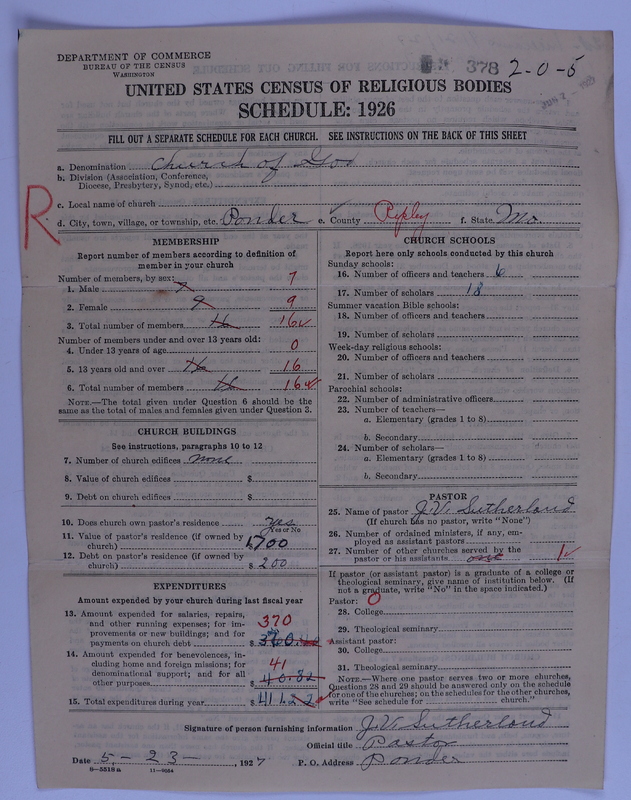 DEPARTMENT OF COMMERCE
BUREAU OF THE CENSUS
WASHINGTON
378 2-0-5
UNITED STATES CENSUS OF RELIGIOUS BODIES
SCHEDULE: 1926
FILL OUT A SEPARATE SCHEDULE FOR EACH CHURCH. SEE INSTRUCTIONS ON THE BACK OF THIS SHEET
a. Denomination Church of God
b. Division (Association, Conference, Diocese, Presbytery, Synod, etc.)
c. Local name of church
R
d. City, town, village, or township, etc. Ponder e. County Ripley f. State Mo.
MEMBERSHIP
Report number of members according to definition of member in your church
Number of members, by sex:
1. Male 7 7
2. Female 9 9
3. Total number of members 16 16
Number of members under and over 13 years old:
4. Under 13 years of age 0
5. 13 years old and over 16 16
6. Total number of members 16 16
NOTE.—The total given under Question 6 should be the same as the total of males and females given under Question 3.
CHURCH BUILDINGS
See instructions, paragraphs 10 to 12
7. Number of church edifices none
8. Value of church edifices $
9. Debt on church edifices $
10. Does church own pastor's residence yes
Yes or No
11. Value of pastor's residence (if owned by church) 700
12. Debt on pastor's residence (if owned by church) $ 200
EXPENDITURES
Amount expended by your church during last fiscal year
13. Amount expended for salaries, repairs, and other running expenses; for improvements or new buildings; and for payments on church debt $ 370
14. Amount expended for benevolences, including home and foreign missions; for denominational support; and for all other purposes $ 41 40.82
15. Total expenditures during year $ 411.22
CHURCH SCHOOLS
Report here only schools conducted by this church
Sunday schools:
16. Number of officers and teachers 6
17. Number of scholars 18
Summer vacation Bible schools:
18. Number of officers and teachers
19. Number of scholars
Week-day religious schools:
20. Number of officers and teachers
21. Number of scholars
Parochial schools:
22. Number of administrative officers
23. Number of teachers—
a. Elementary (grades 1 to 8)
b. Secondary
24. Number of scholars—
a. Elementary (grades 1 to 8)
b. Secondary
PASTOR
25. Name of pastor J.V. Sutherland
(If church has no pastor, write "None")
26. Number of ordained ministers, if any, employed as assistant pastors
27. Number of other churches served by the pastor or his assistants one 1
If pastor (or assistant pastor) is a graduate of a college or theological seminary, give name of institution below. (If not a graduate, write "No" in the space indicated.)
Pastor: 0
28. College
29. Theological seminary
Assistant pastor:
30. College
31. Theological seminary
NOTE.—Where one pastor serves two or more churches, Questions 28 and 29 should be answered only on the schedule for one of the churches; on the schedules for the other churches, write "See schedule for ........ church."
Signature of person furnishing information J.V. Sutherland
Official title Pastor
Date 5-23-, 1927 P. O. Address Ponder
8—5518a 11—9034